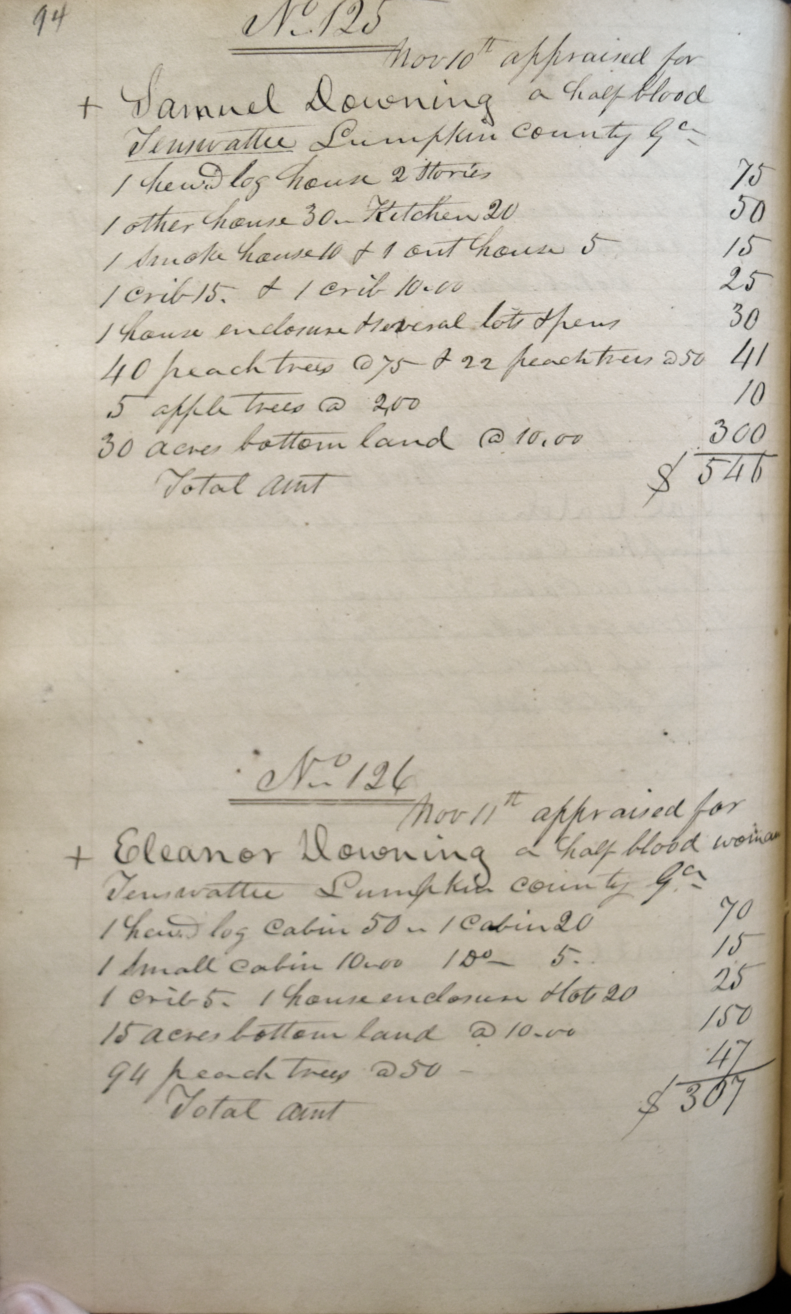 94
No. 125
Nov 10th appraised for
+ Samuel Downing a half blood
Tenswattee Lumpkin county Ga
1 hewd log house 2 stories 75
1 other house 30.. Kitchen 20 50
1 smoke house 10 & 1 out house 5 15
1 crib 15. & 1 crib 10.00 25
1 house enclosure & several lots & pens 30
40 peach trees @ 75 & 22 peach trees @ 50 41
5 apple trees @ 2.00 10
30 acres bottom land @ 10.00 300
Total amt $546
No. 126
Nov 11th appraised for
+ Eleanor Downing a half blood woman
Tenswattee Lumpkin county Ga
1 hewd log cabin 50.. 1 cabin 20 70
1 small cabin 10.00 1 Do 5.. 15
1 crib 5. 1 house enclosure & lots 20 25
15 acres bottom land @ 10.00 150
94 peach trees @ 50 - 47
Total amt $307